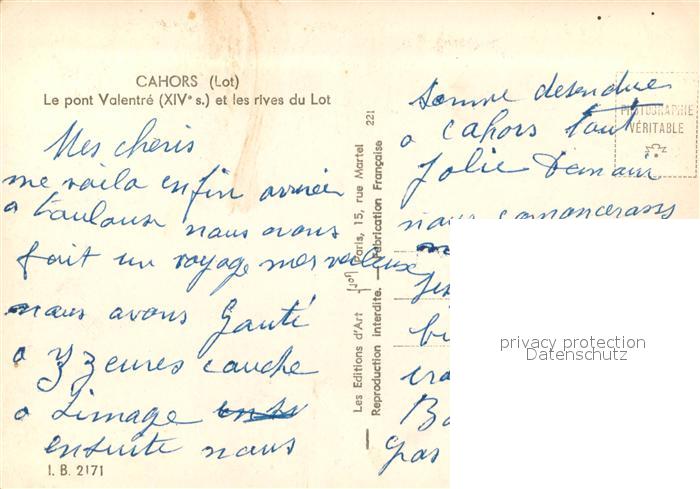 CAHORS (Lot)
Le pont Valentré (XIVe s.) et les rives du Lot
Mes cheris
me voila enfin arrivée
a toulouse nous avons
fait un voyage merveileux
nous avons Gouté
a
cauche
a Limoge
ensuite nous
I. B. 2171
Les Editions d'Art JOF Paris, 15, rue Martel
Reproduction interdite. — Fabrication Française
221
somme desendue
a cahors tout
Jolie Demain
nous comoncerons
PHOTOGRAPHIE
VÉRITABLE
privacy protection
Datenschutz